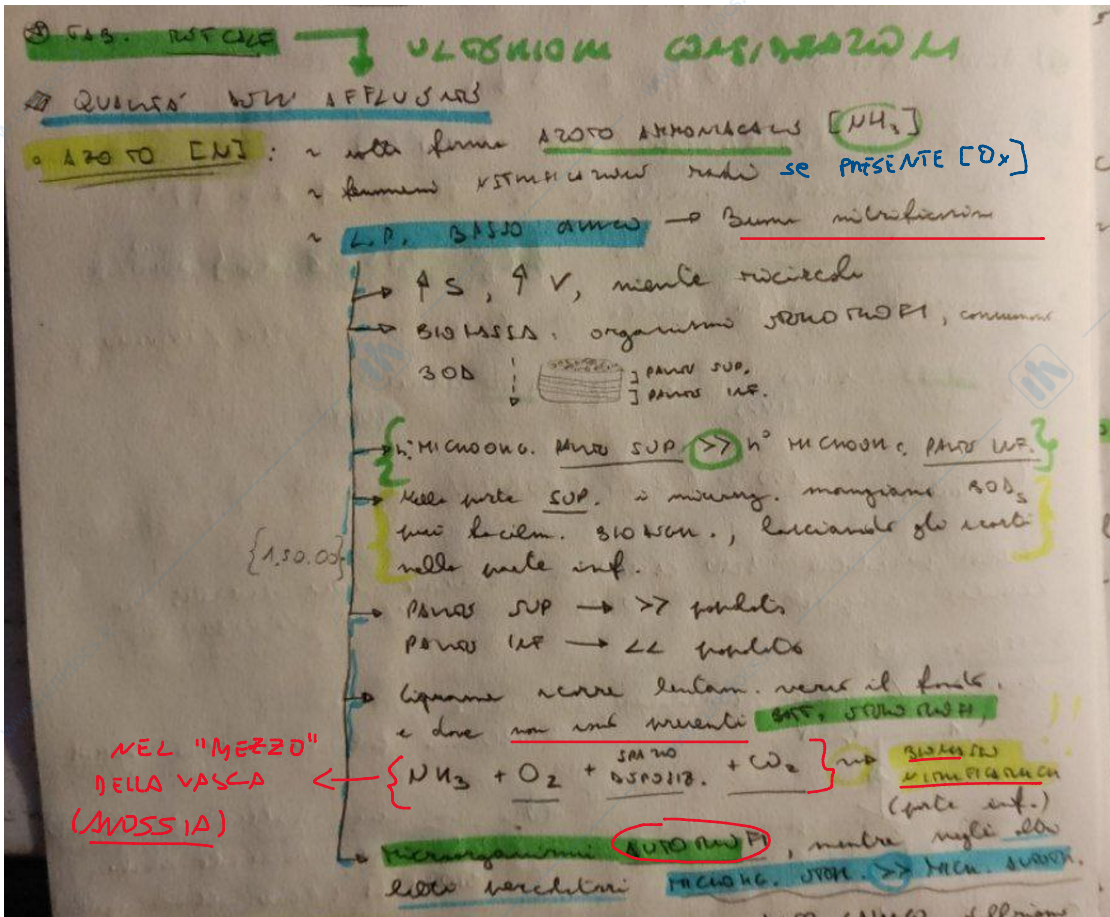 ULTERIORI CONSIDERAZIONI
QUALITÀ DELL' AFFLUENTE
• AZOTO [N] : ~ sotto forma AZOTO AMMONIACALE [NH3]
~ fenomeni NITRIFICAZIONE radi se PRESENTE [Ox]
~ L.P. BASSO CARICO → Buona nitrificazione
→ ↑ S, ↑ V, niente ricircolo
→ BIOMASSA: organismi ETEROTROFI, consumano
BOD
PARTE SUP.
PARTE INF.
→ n° MICROORG. PARTE SUP >> n° MICROORG. PARTE INF.
→ Nella parte SUP. i microorg. mangiano BOD5
più facilm. BIODEGR., lasciando gli scarti
nella parte inf.
{1.50.00}
→ PARTE SUP → >> popolata
PARTE INF → << popolata
→ Liquame scorre lentam. verso il fondo.
e dove non sono presenti BATT. ETEROTROFI,
!!
NEL "MEZZO"
DELLA VASCA
(ANOSSIA)
{NH3 + O2 + SPAZIO DISPONIB. + CO2}
BIOMASSA
NITRIFICATRICE
(parte inf.)
→ Microrganismi AUTOTROFI, mentre negli altri
letti percolatori MICRORG. ETER. >> MICR. AUTOTR.